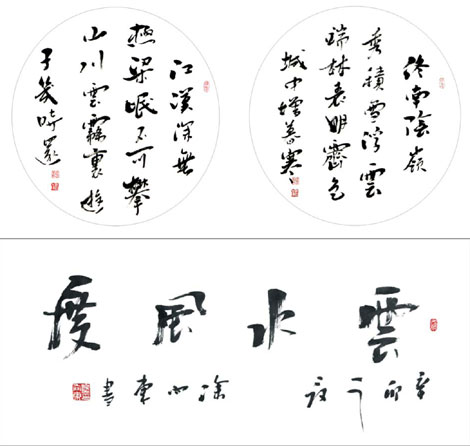 終南陰嶺
秀積雪浮雲
端林表明霽色
城中增暮寒
江漢深無
極梁岷不可攀
山川雲霧裏遊
子幾時還
雲水風度
辛卯
東書